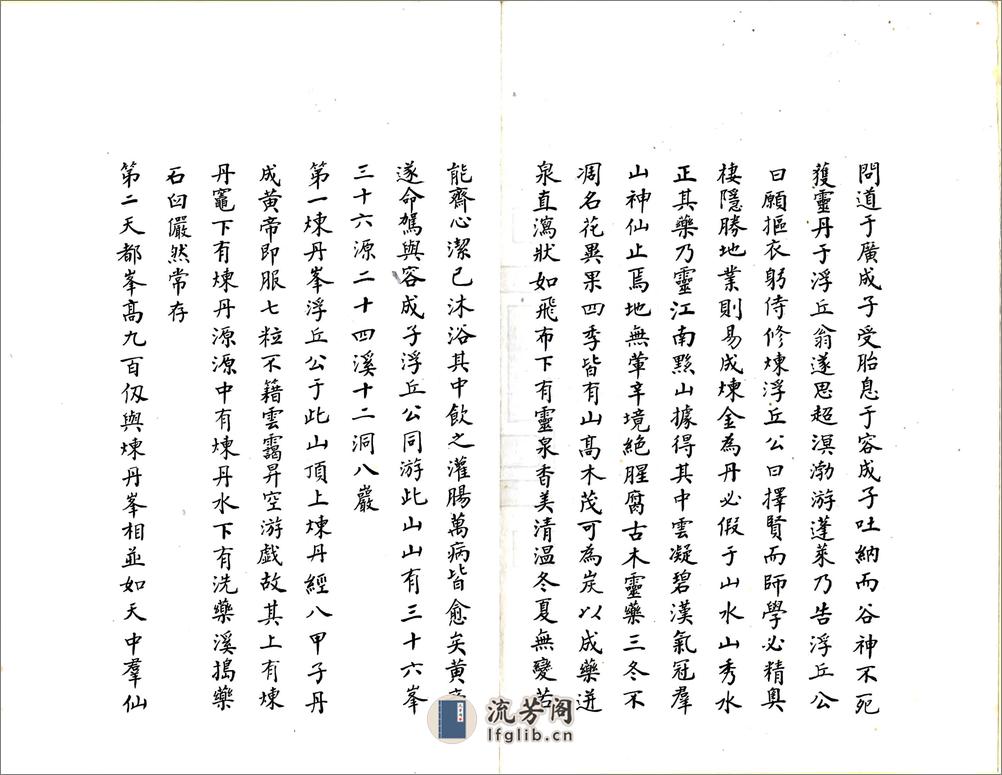 問道于廣成子受胎息于容成子吐納而谷神不死
獲靈丹于浮丘翁遂思超溟渤游蓬萊乃告浮丘公
曰願摳衣躬侍修煉浮丘公曰擇賢而師學必精奧
棲隱勝地業則易成煉金為丹必假于山水山秀水
正其藥乃靈江南黟山據得其中雲凝碧漢氣冠羣
山神仙止焉地無葷辛境絕腥腐古木靈藥三冬不
凋名花異果四季皆有山高木茂可為炭以成藥迸
泉直瀉狀如飛布下有靈泉香美清溫冬夏無變若
能齋心潔己沐浴其中飲之灌腸萬病皆愈矣黃帝
遂命駕與容成子浮丘公同游此山山有三十六峯
三十六源二十四溪十二洞八巖
第一煉丹峯浮丘公于此山頂上煉丹經八甲子丹
成黃帝即服七粒不籍雲靄昇空游戲故其上有煉
丹竈下有煉丹源源中有煉丹水下有洗藥溪搗藥
石臼儼然常存
第二天都峯高九百仭與煉丹峯相並如天中羣仙
流芳阁
lfglib.cn